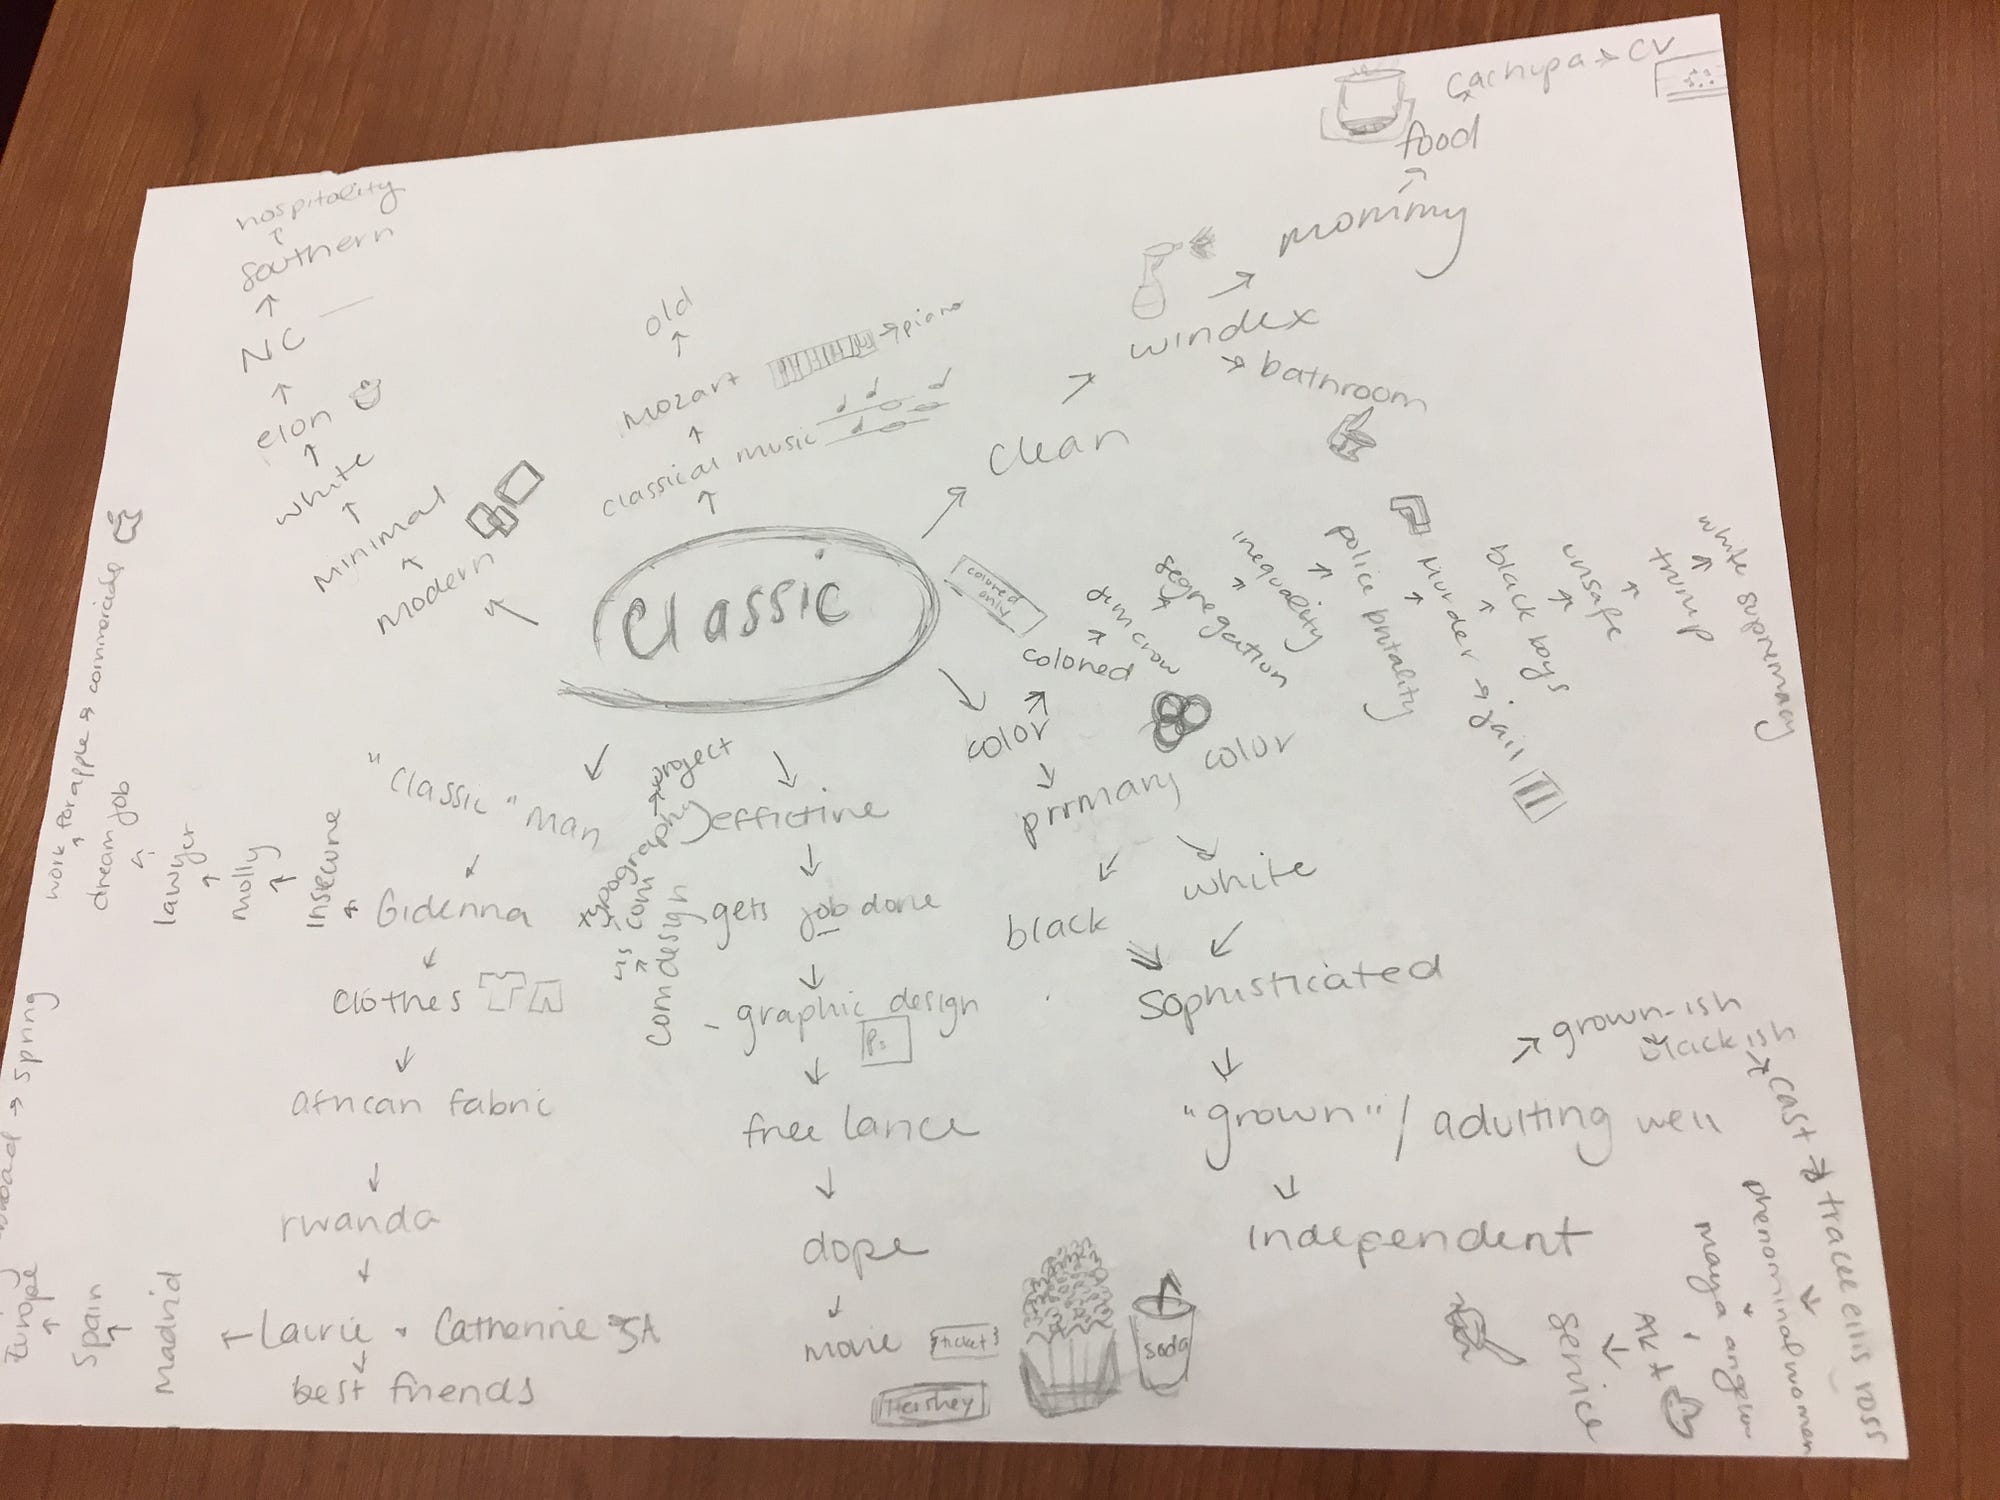 hospitality
southern
NC
elon
white
minimal
modern
old
Mozart
piano
classical music
clean
windex
mommy
food
cachupa → CV
bathroom
Classic
colored only
color
colored
Jim crow
segregation
inequality
police brutality
Murder → jail
black boys
unsafe
trump
white supremacy
primary color
black
white
Sophisticated
"grown" / adulting well
grown-ish
blackish
cast → tracee ellis ross
phenominal women
maya angelou
AKA
service
Independent
effictine
gets job done
graphic design
Ps
free lance
dope
movie
ticket
Hershey
soda
com design
vis com
typography → project
"Classic" man
Gidenna
clothes
african fabric
rwanda
Laurie
Catherine SA
best friends
Insecure
molly
lawyer
dream job
work for apple → commericals
Madrid
Spain
Europe
abroad → spring